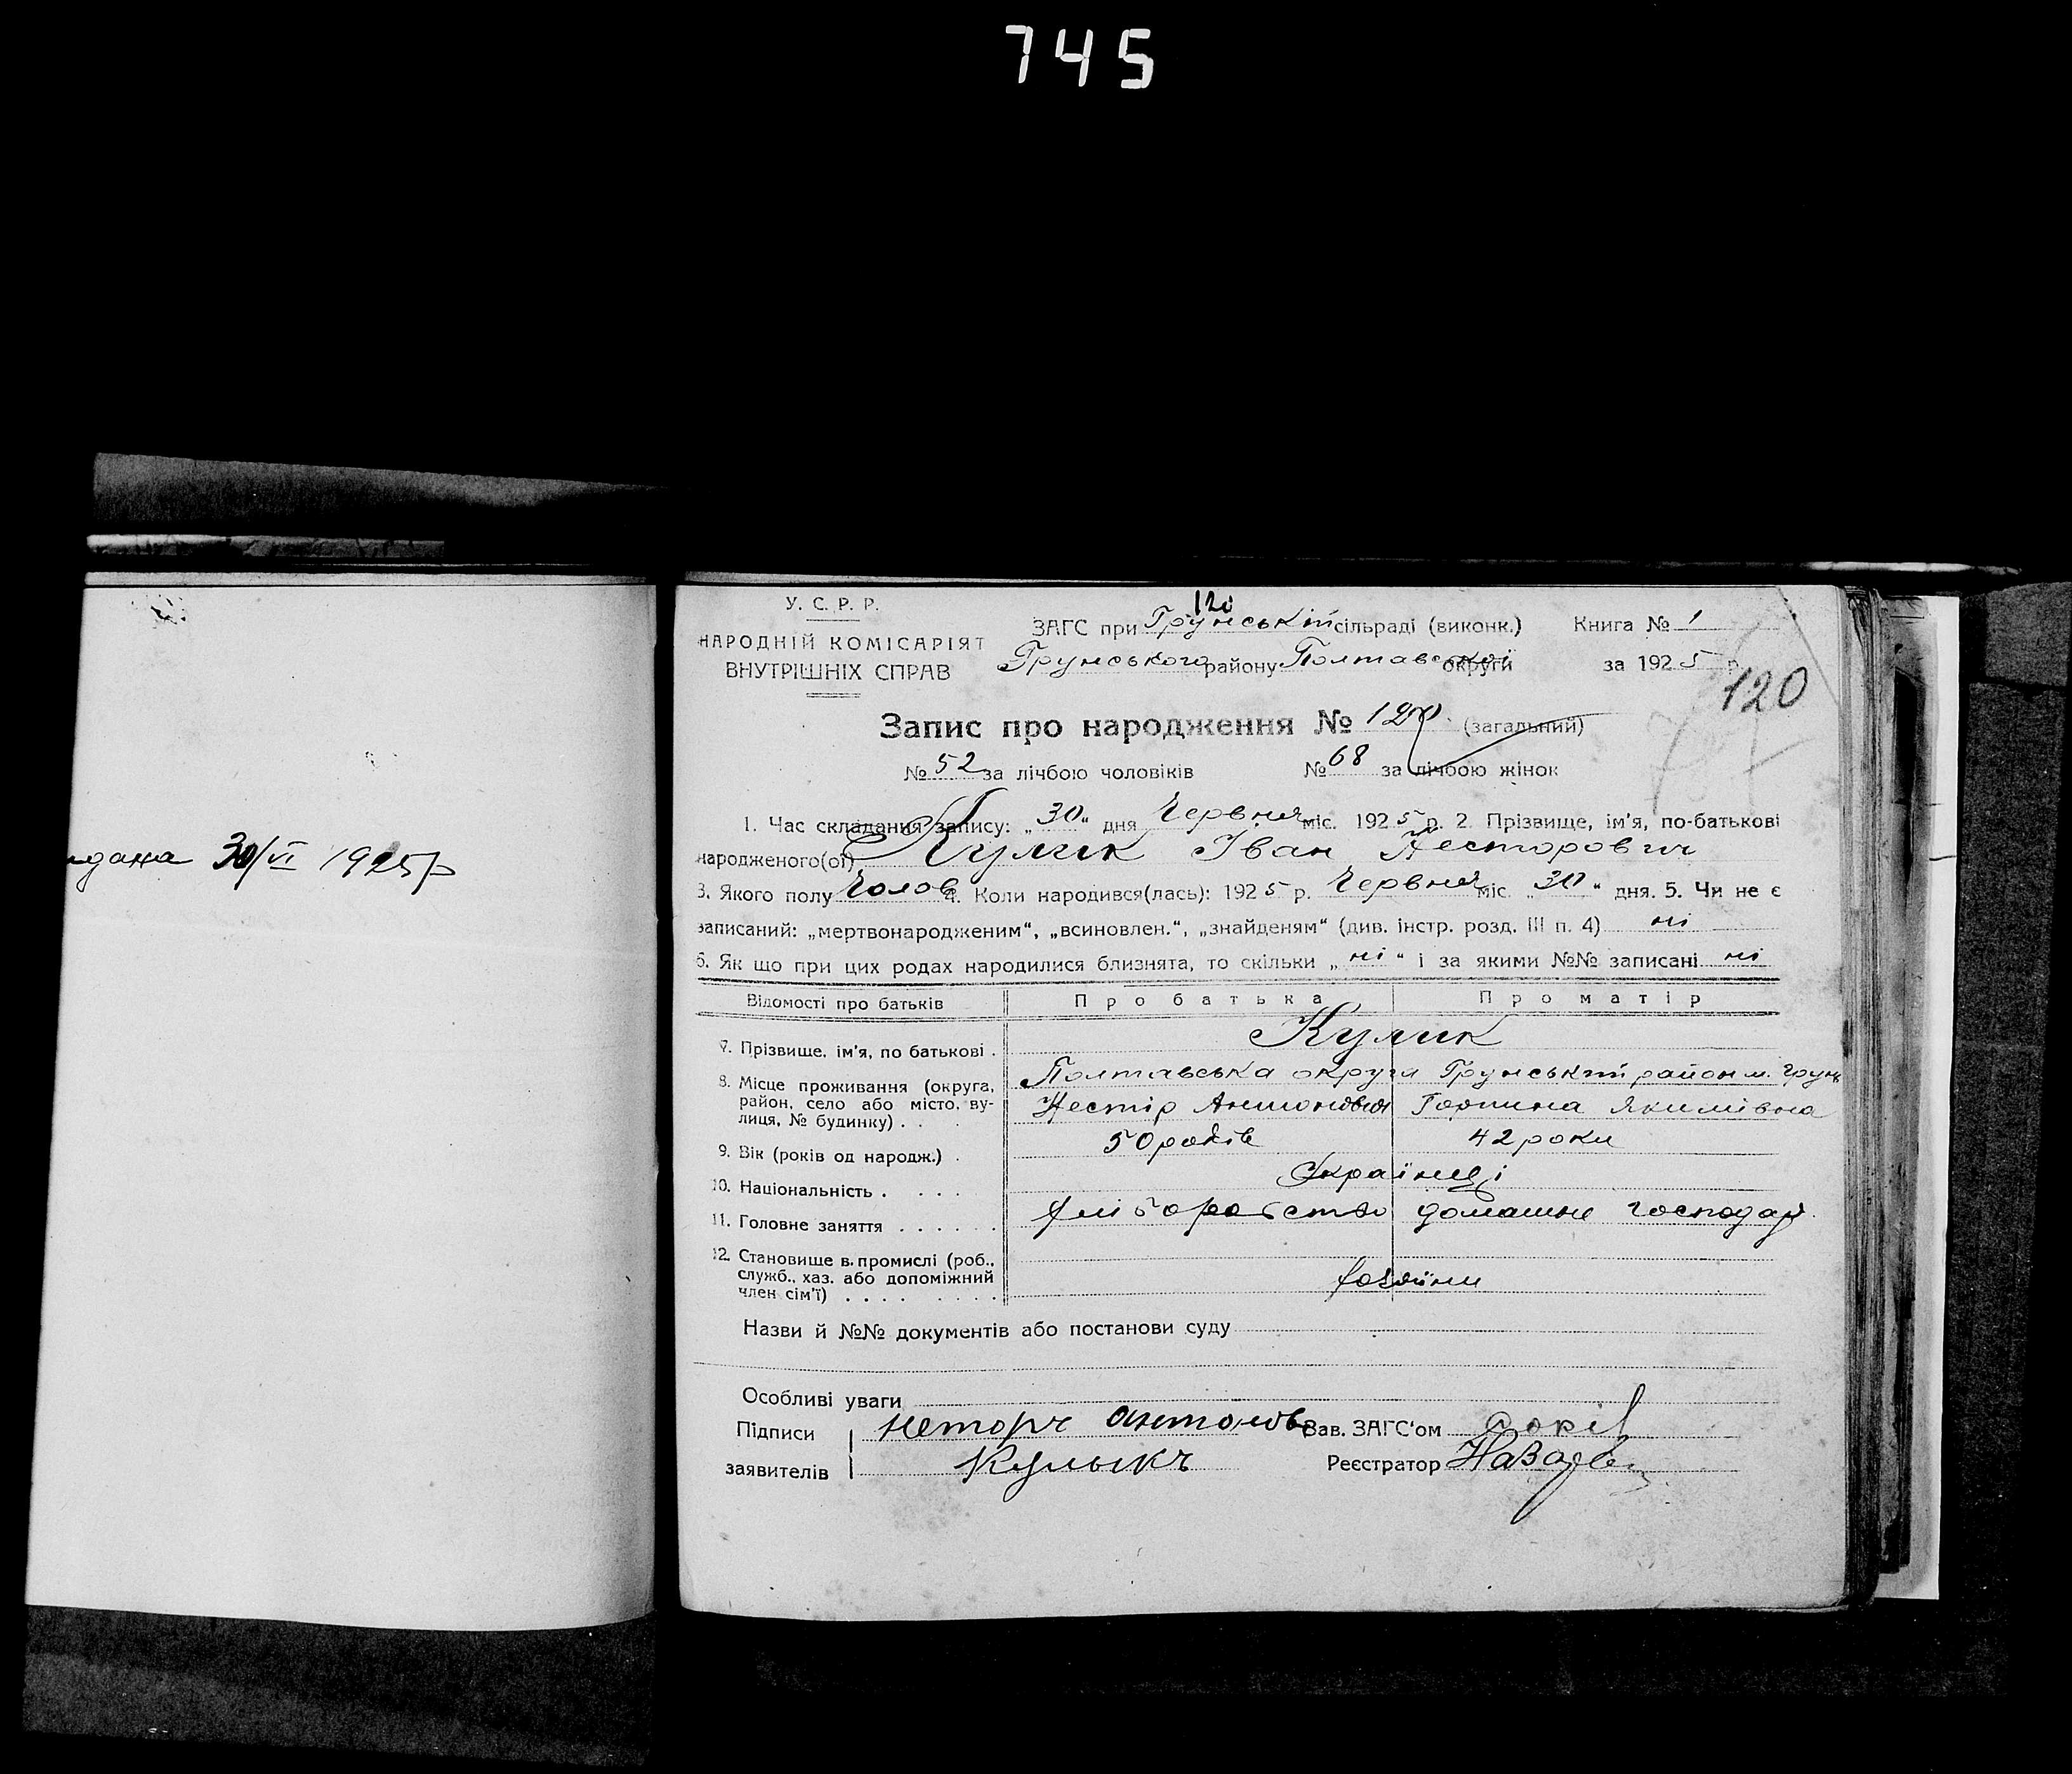 745
дана 30/VI 1925р
У. С. Р. Р.
НАРОДНІЙ КОМІСАРІЯТ
ВНУТРІШНІХ СПРАВ
120
ЗАГС при Грунській сільраді (виконк.) Книга № 1
Грунського району Полтавської округи за 1925 р.
120
Запис про народження № 120 (загальний)
№ 52 за лічбою чоловіків № 68 за лічбою жінок
1. Час складання запису: „30“ дня Червня міс. 1925 р. 2. Прізвище, ім'я, по-батькові
народженого(ої) Кулик Іван Несторович
3. Якого полу Чолов 4. Коли народився(лась): 1925 р. Червня міс. „30“ дня. 5. Чи не є
записаний: „мертвонародженим“, „всиновлен.“, „знайденям“ (див. інстр. розд. III п. 4) ні
6. Як що при цих родах народилися близнята, то скільки „ні“ і за якими №№ записані ні
Відомості про батьків Про батька Про матір
7. Прізвище, ім'я, по батькові . Кулик
8. Місце проживання (округа, район, село або місто, вулиця, № будинку) . . Полтавська округи Грунський район м. Грунь
Нестір Антонович Горпина Якимівна
9. Вік (років од народж.) . 50 років 42 роки
10. Національність . . . . Українці
11. Головне заняття . . . . . . хліборобство домашнє господар.
12. Становище в промислі (роб., служб., хаз. або допоміжний член сім'ї) . . . . . . . . хазяїни
Назви й №№ документів або постанови суду
Особливі уваги
Підписи Неторъ Антоновъ Зав. ЗАГС'ом
заявителів Кулыкъ Реєстратор